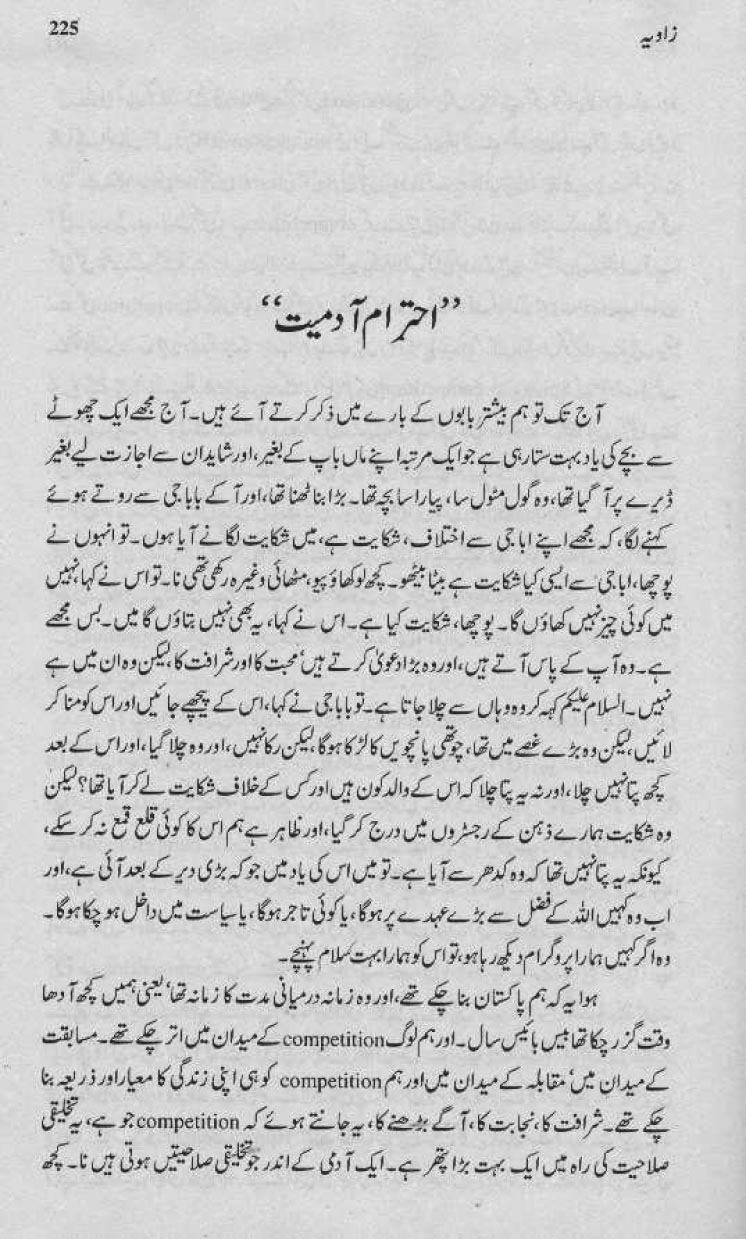 زاویہ
225
”احترام آدمیت“
آج تک تو ہم بیشتر بابوں کے بارے میں ذکر کرتے آئے ہیں۔ آج مجھے ایک چھوٹے
سے بچے کی یاد بہت ستا رہی ہے جو ایک مرتبہ اپنے ماں باپ کے بغیر، اور شاید ان سے اجازت لیے بغیر
ڈیرے پر آ گیا تھا، وہ گول مٹول سا، پیارا سا بچہ تھا۔ بڑا بنا ٹھنا تھا، اور آ کے بابا جی سے روتے ہوئے
کہنے لگا، کہ مجھے اپنے ابا جی سے اختلاف، شکایت ہے، میں شکایت لگانے آیا ہوں۔ تو انہوں نے
پوچھا، ابا جی سے ایسی کیا شکایت ہے بیٹا بیٹھو۔ کچھ لو کھاؤ پیو، مٹھائی وغیرہ رکھی تھی نا۔ تو اس نے کہا، نہیں
میں کوئی چیز نہیں کھاؤں گا۔ پوچھا، شکایت کیا ہے۔ اس نے کہا، یہ بھی نہیں بتاؤں گا میں۔ بس مجھے
ہے۔ وہ آپ کے پاس آتے ہیں، اور وہ بڑا دعویٰ کرتے ہیں، محبت کا اور شرافت کا، لیکن وہ ان میں ہے
نہیں۔ السلام علیکم کہہ کر وہ وہاں سے چلا جاتا ہے۔ تو بابا جی نے کہا، اس کے پیچھے جائیں اور اس کو منا کر
لائیں، لیکن وہ بڑے غصے میں تھا، چوتھی پانچویں کا لڑکا ہوگا، لیکن رکا نہیں، اور وہ چلا گیا، اور اس کے بعد
کچھ پتا نہیں چلا، اور نہ یہ پتا چلا کہ اس کے والد کون ہیں اور کس کے خلاف شکایت لے کر آیا تھا؟ لیکن
وہ شکایت ہمارے ذہن کے رجسٹروں میں درج کر گیا، اور ظاہر ہے ہم اس کا کوئی قلع قمع نہ کر سکے،
کیونکہ یہ پتا نہیں تھا کہ وہ کدھر سے آیا ہے۔ تو میں اس کی یاد میں جو کہ بڑی دیر کے بعد آئی ہے، اور
اب وہ کہیں اللہ کے فضل سے بڑے عہدے پر ہوگا، یا کوئی تاجر ہوگا، یا سیاست میں داخل ہو چکا ہوگا۔
وہ اگر کہیں ہمارا پروگرام دیکھ رہا ہو، تو اس کو ہمارا بہت سلام پہنچے۔
ہوا یہ کہ ہم پاکستان بنا چکے تھے، اور وہ زمانہ درمیانی مدت کا زمانہ تھا، یعنی ہمیں کچھ آدھا
وقت گزر چکا تھا بیس بائیس سال۔ اور ہم لوگ competition کے میدان میں اتر چکے تھے۔ مسابقت
کے میدان میں، مقابلہ کے میدان میں اور ہم competition کو ہی اپنی زندگی کا معیار اور ذریعہ بنا
چکے تھے۔ شرافت کا، نجابت کا، آگے بڑھنے کا، یہ جانتے ہوئے کہ competition جو ہے، یہ تخلیقی
صلاحیت کی راہ میں ایک بہت بڑا پتھر ہے۔ ایک آدمی کے اندر جو تخلیقی صلاحیتیں ہوتی ہیں نا۔ کچھ